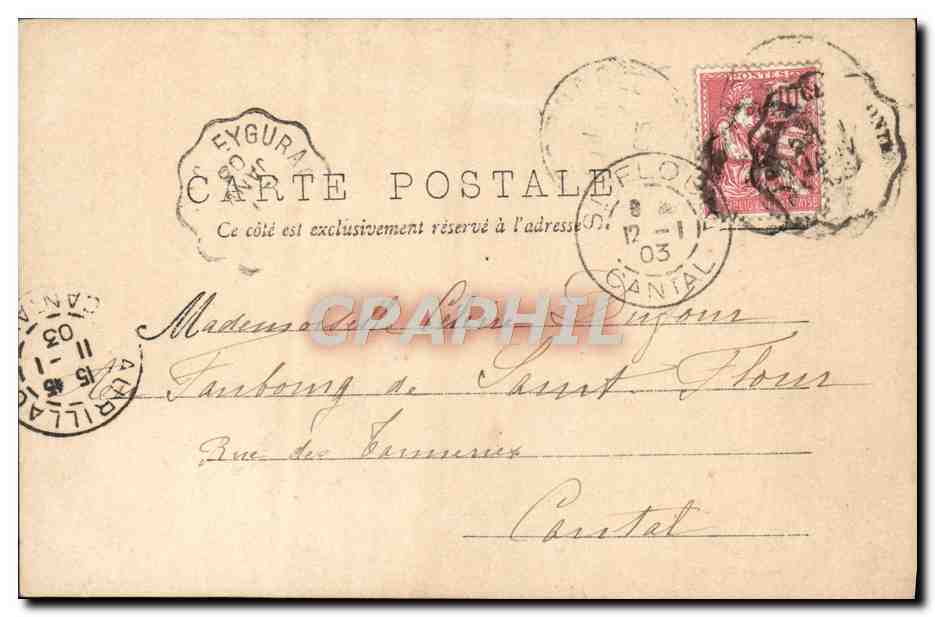 POSTES
EYGURA
JANV
03
CARTE POSTALE
Ce côté est exclusivement réservé à l'adresse
ST FLOUR
12 - 1
03
CANTAL
CRAPHIL
Mademoiselle Dufour
Faubourg de Saint Flour
Rue des Tanneries
Cantal
AURILLAC
15
11 - 1
03
CAN